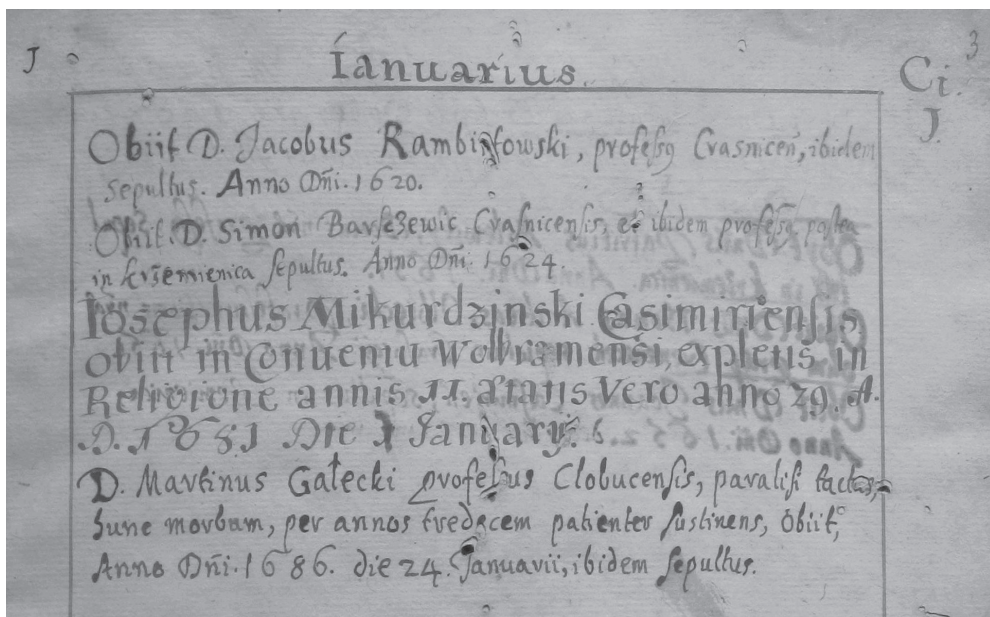 J
3
Ianuarius.
Ci.
J.
Obiit D. Jacobus Rambiſtowski, profeſsꝯ Crasniceñ, ibidem
sepultus. Anno Dñi. 1620.
Obiit D. Simon Barſczewic Craſnicenſis, et ibidem profeſsꝯ postea
in Krzemienica ſepultus. Anno Dñi. 1624.
Iosephus Mikurdzinski Casimirienſis,
obiit in Conuentu Wolbramensi, expletis in
Religione annis 11. ætatis Vero anno 29. A.
D. 1681 Die Januarÿ 6.
D. Martinus Gałecki profeſsus Clobucenſis, paraliſi tactus,
hunc morbum, per annos tredecem patienter ſustinens, Obiit,
Anno Dñi. 1686. die 24. Januarii, ibidem ſepultus.